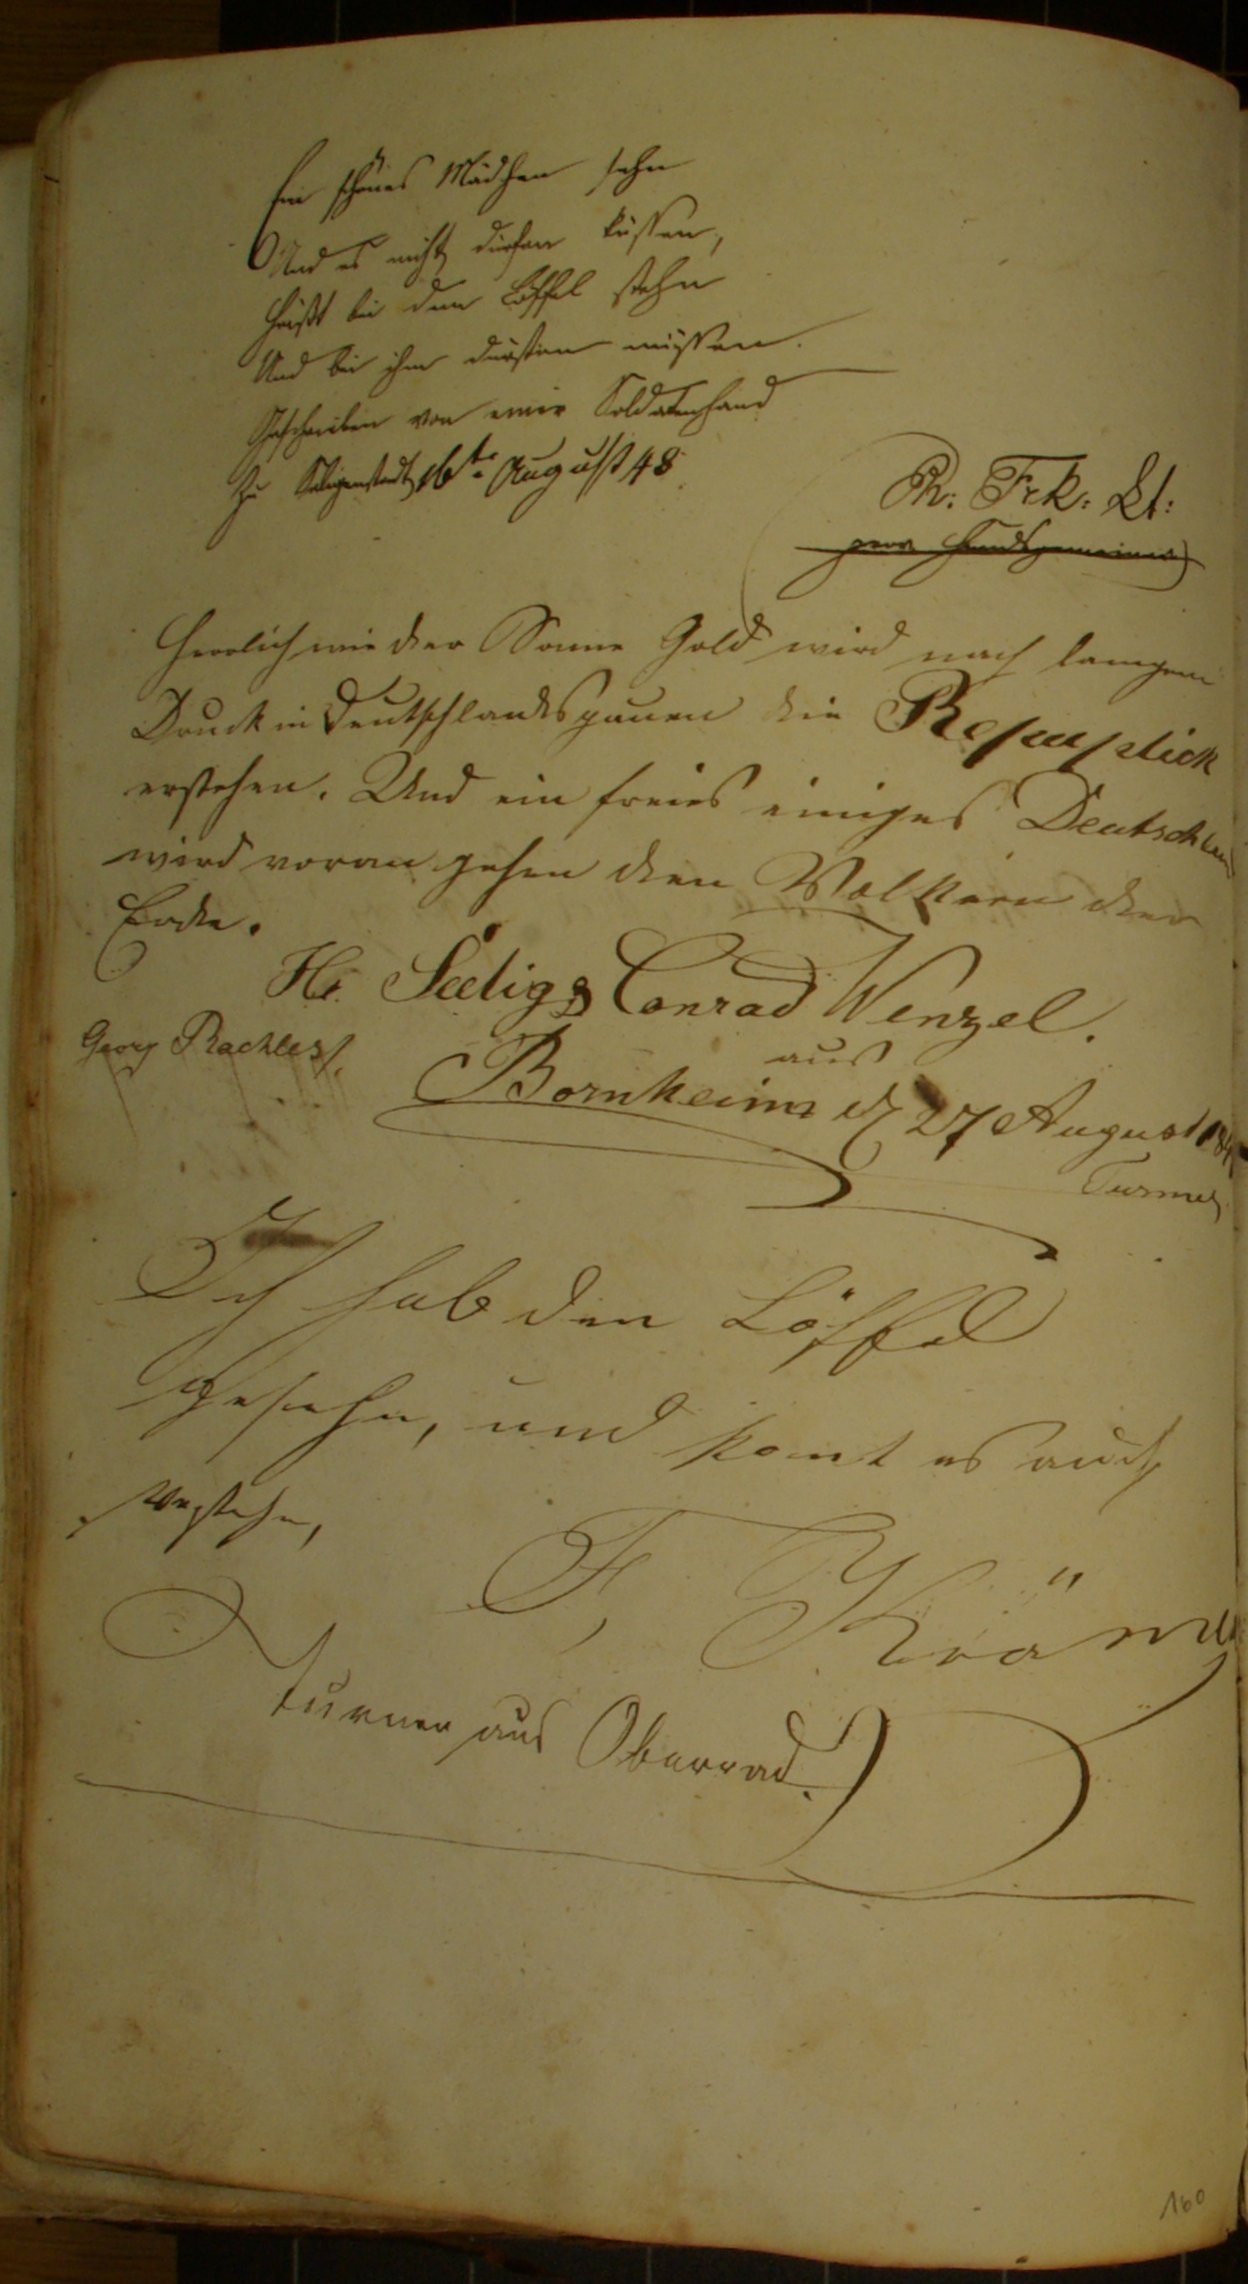 Ein schönes Mädchen sehn
Und es nicht dürfen küssen,
Heißt bei dem Löffel stehn
Und bei ihm dürsten müssen.
Geschrieben von einer Soldatenhand
Zu Seligenstadt 16te August 48
Ph. Frk. Lt:
Herrlich wie der Sonne Gold wird nach langem
Druck in Deutschlandsgauen die Repuplick
erstehen. Und ein freies einiges Deutschland
wird voran gehen den Völkern der
Erde.
Hr. Seelig & Conrad Wenzel.
Georg Rachles
aus
Bornheim d 27 August 184
Turner
Ich hab den Löffel
gesehn, und kont es auch
verstehn,
F. Krämer
Turner aus Oberrad.
160